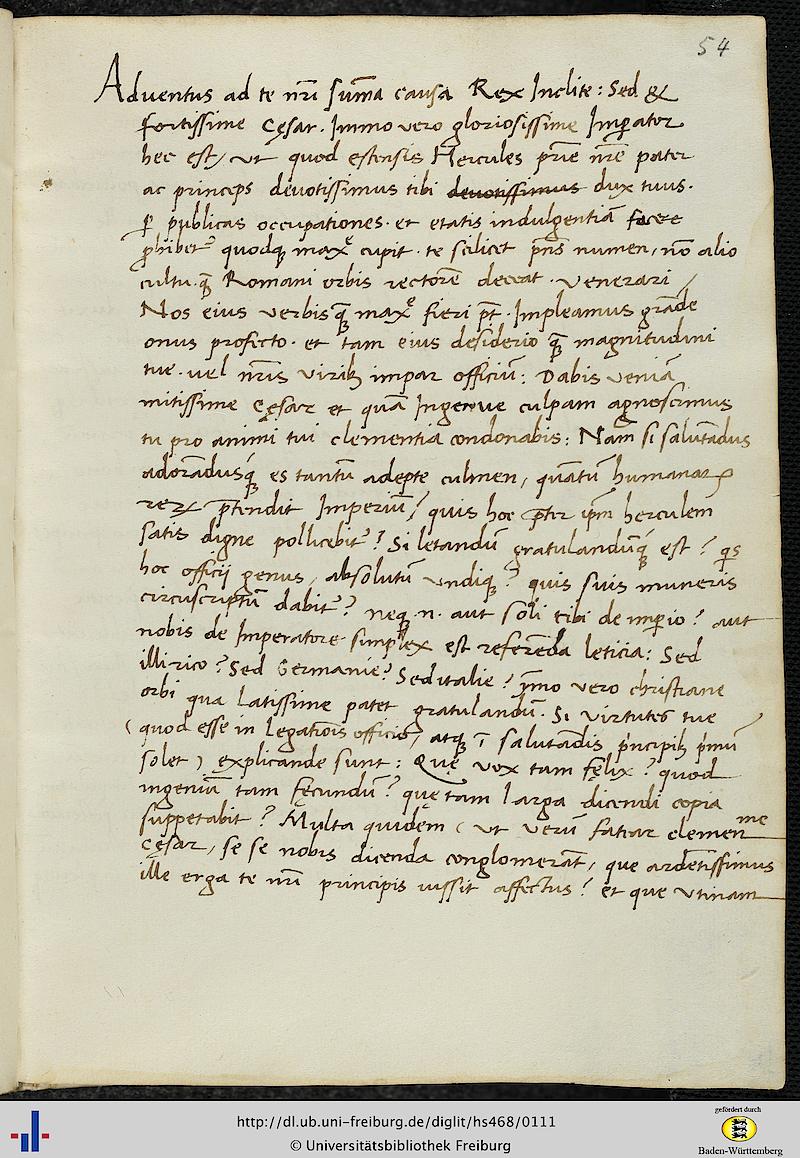 54
Aduentus ad te nr̄i sum̄a causa Rex Inclite: Sed &
fortissime Cęsar. Immo vero gloriosissime Imꝑator
hec est, ut quod estensis Hercules prīe nr̄e pater
ac princeps deuotissimus tibi deuotissimus dux tuus.
ꝑ publicas occupationes. et etatis indulgentiā facere
ꝓhibetᷣ quodqꝫ maxē cupit. te scilicet pn̄s numen, nō alio
cultu. qꝫ̄ Romani orbis rectorē deceat. venerari
Nos eius verbisqꝫ maxē fieri pt̄. Impleamus grāde
onus profecto. et tam eius desiderio qꝫ̄ magnitudini
tue. uel nr̄is viribꝫ impar officiū: Dabis veniā
mitissime Cęsar et quā Ingenue culpam agnoscimus
tu pro animi tui clementia condonabis: Nam si salutādus
adorādusqꝫ́ es tantū adepte culmen, quātū humanaꝝ
reꝝ p̄tendit Imperiū? quis hoc p̄ter ip̄m herculem
satis digne pollicebitᷣ? Si letandū gratulandūqꝫ́ est? qͥs
hoc officij genus, absolutū undiqꝫ? quis suis numeris
circūscriptū dabitᷣ? neqꝫ .n. aut soli tibi de imꝑio? aut
nobis de Imperatore simplex est referēda leticia: Sed
illirico? Sed Germanie? Sed italie? ȳmo vero christiane
orbi qua latissime patet gratulandū. Si virtutes tue
(quod esse in legatiōis officio, atqꝫ ī salutādis pͥncipibꝫ pͥmū
solet) explicande sunt: Quę vox tam fęlix? quod
ingeniū tam fęcundū? quę tam larga dicendi copia
suppetabit? Multa quidem (ut verū fatear clemen me
Cęsar, se se nobis dicenda conglomerāt, que ardētissimus
ille erga te nr̄i principis iussit affectus? et que utinam
http://dl.ub.uni-freiburg.de/diglit/hs468/0111
© Universitätsbibliothek Freiburg
gefördert durch
Baden-Württemberg